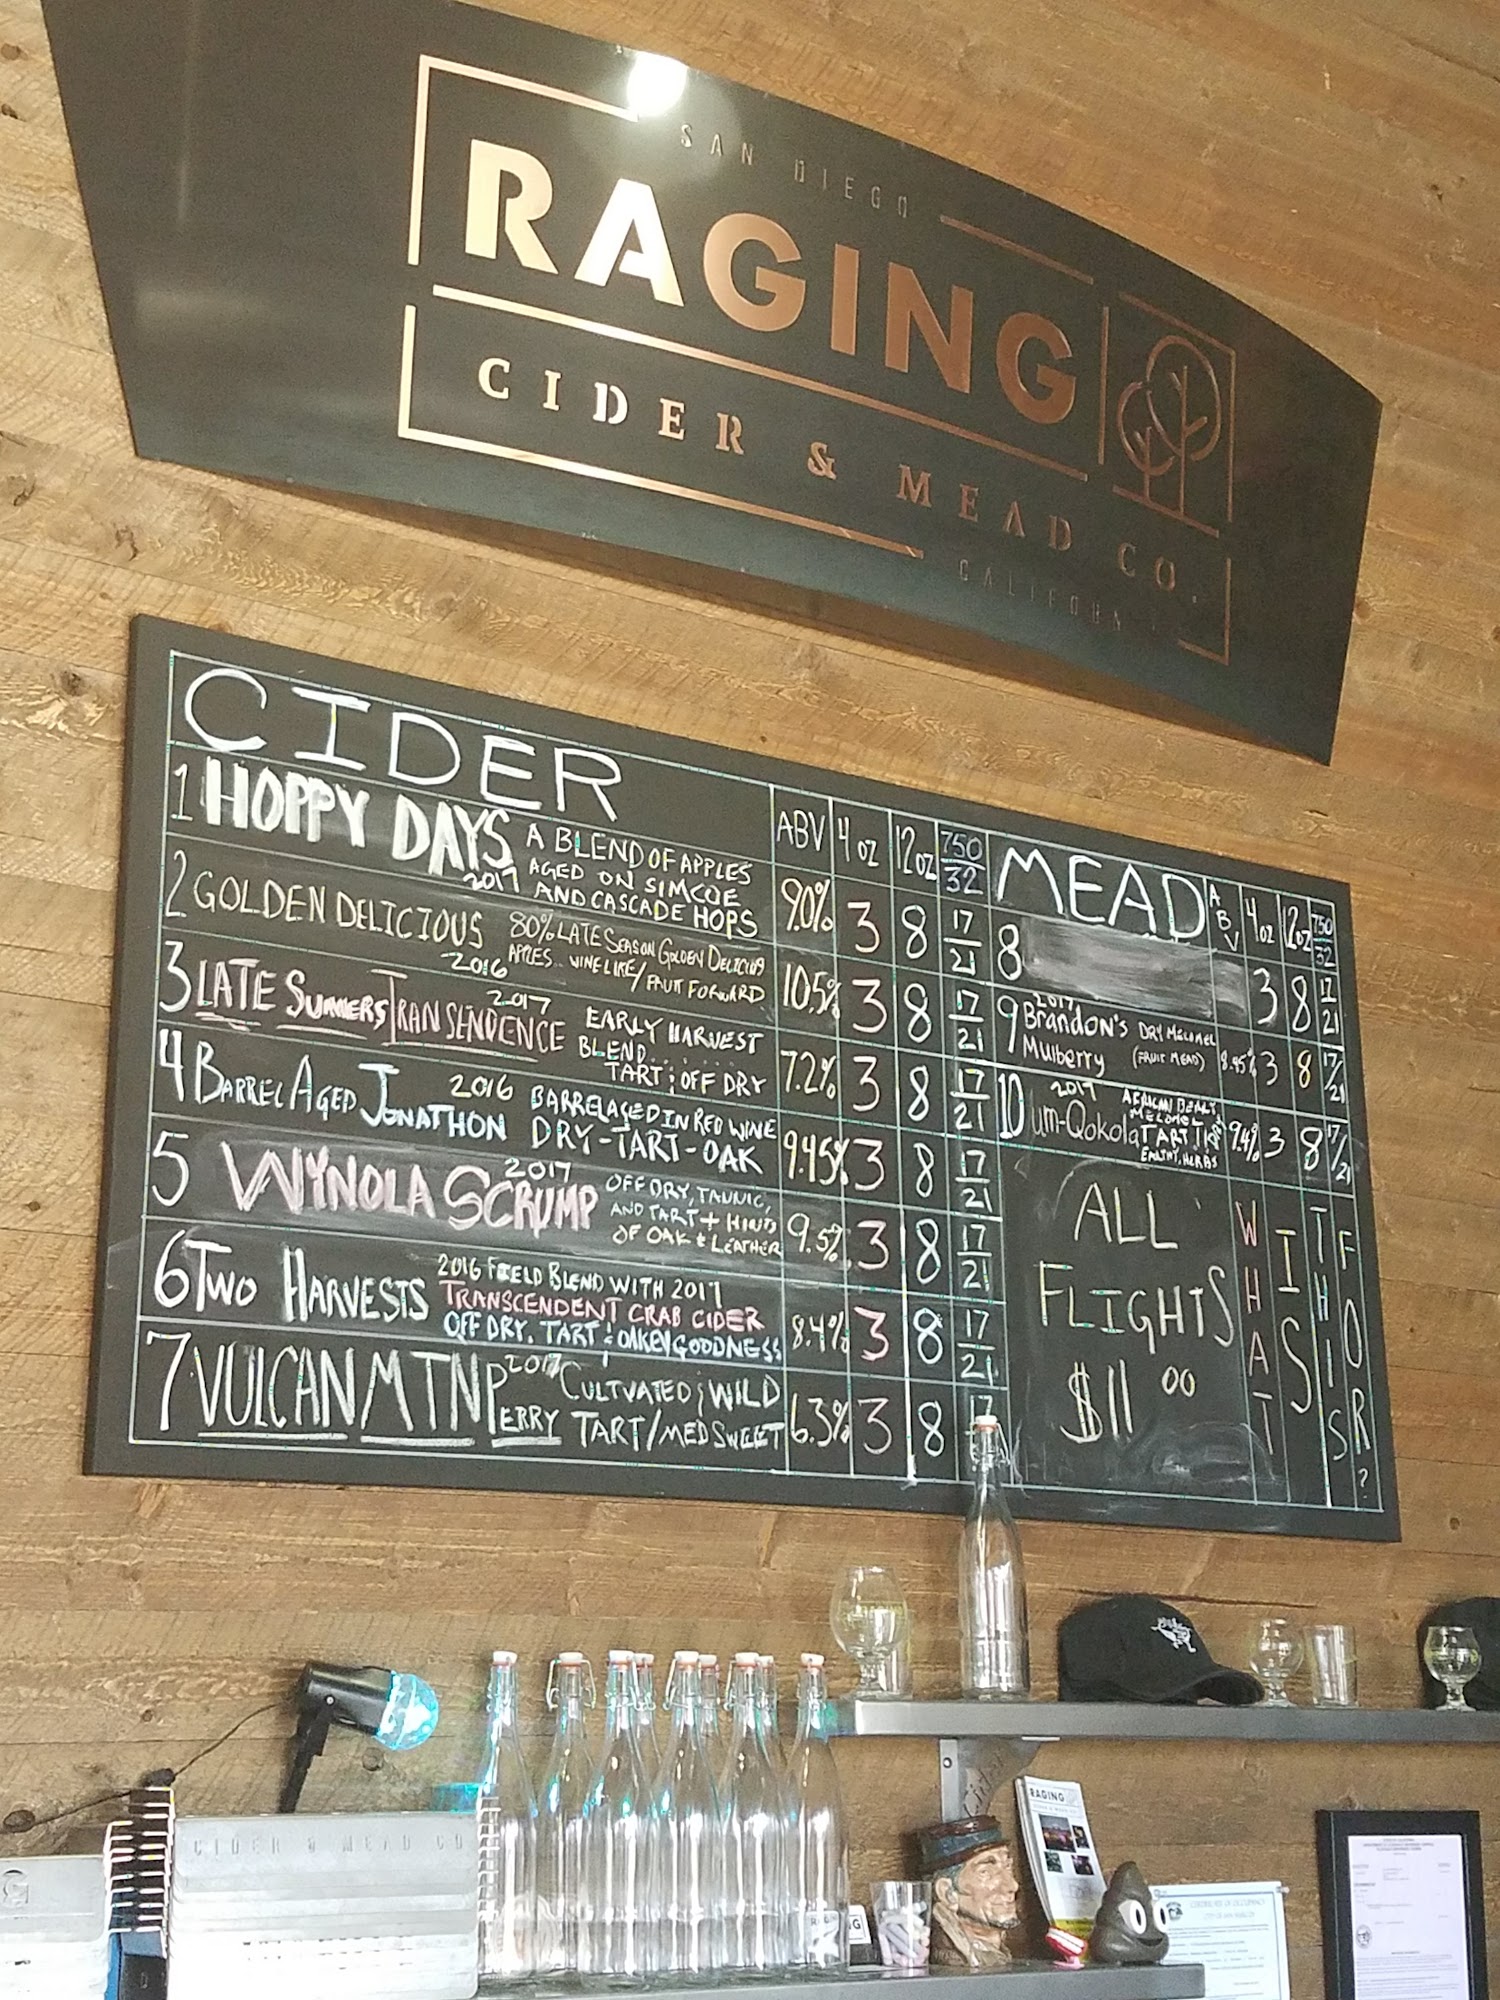 SAN DIEGO
RAGING
CIDER & MEAD CO.
CIDER
ABV 4oz 12oz 750 32
1 HOPPY DAYS 2017 A BLEND OF APPLES
AGED ON SIMCOE
AND CASCADE HOPS
9.0% 3 8 17 21
2 GOLDEN DELICIOUS 2016 80% LATE SEASON GOLDEN DELICIOUS
APPLES... WINE LIKE/FRUIT FORWARD
10.5% 3 8 17 21
3 LATE SUMMERS TRANSENDENCE 2017 EARLY HARVEST
BLEND......
TART; OFF DRY
7.2% 3 8 17 21
4 BARREL AGED JONATHON 2016 BARREL AGED IN RED WINE
DRY-TART-OAK
9.45% 3 8 17 21
5 WYNOLA SCRUMP 2017 OFF DRY, TANNIC,
AND TART + HINTS
OF OAK & LEATHER
9.5% 3 8 17 21
6 TWO HARVESTS 2016 FIELD BLEND WITH 2017
TRANSCENDENT CRAB CIDER
OFF DRY, TART & OAKEY GOODNESS
8.4% 3 8 17 21
7 VULCAN MTN PERRY 2017 CULTVATED & WILD
TART/MED SWEET
6.3% 3 8 17
MEAD
ABV 4oz 12oz 750 32
8
3 8 17 21
9 2017 Brandon's Mulberry DRY MELOMEL
(FRUIT MEAD)
8.45% 3 8 17/21
10 2017 um-Qokola AFRICAN BERRY
MELOMEL
TART!! DRY
EARTHY, HERBS
9.4% 3 8 17/21
ALL
FLIGHTS
$11 00
WHAT
IS
THIS
FOR?
CIDER & MEAD CO
RAGING